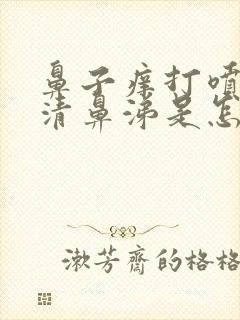 鼻子痒打喷
清鼻涕是怎
漱芳齋的格格